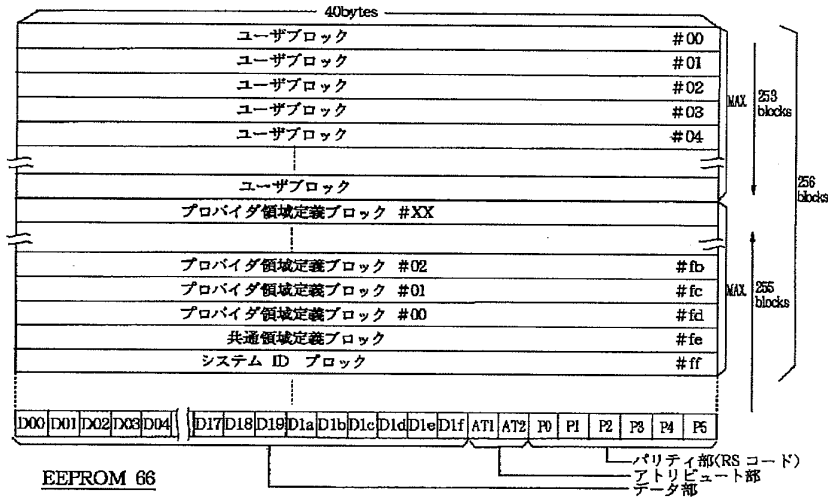 40bytes
ユーザブロック #00
ユーザブロック #01
ユーザブロック #02
ユーザブロック #03
ユーザブロック #04
ユーザブロック
プロバイダ領域定義ブロック #XX
プロバイダ領域定義ブロック #02 #fb
プロバイダ領域定義ブロック #01 #fc
プロバイダ領域定義ブロック #00 #fd
共通領域定義ブロック #fe
システム ID ブロック #ff
MAX. 253 blocks
256 blocks
MAX. 255 blocks
D00 D01 D02 D03 D04 D17 D18 D19 D1a D1b D1c D1d D1e D1f AT1 AT2 P0 P1 P2 P3 P4 P5
パリティ部(RSコード)
アトリビュート部
データ部
EEPROM 66